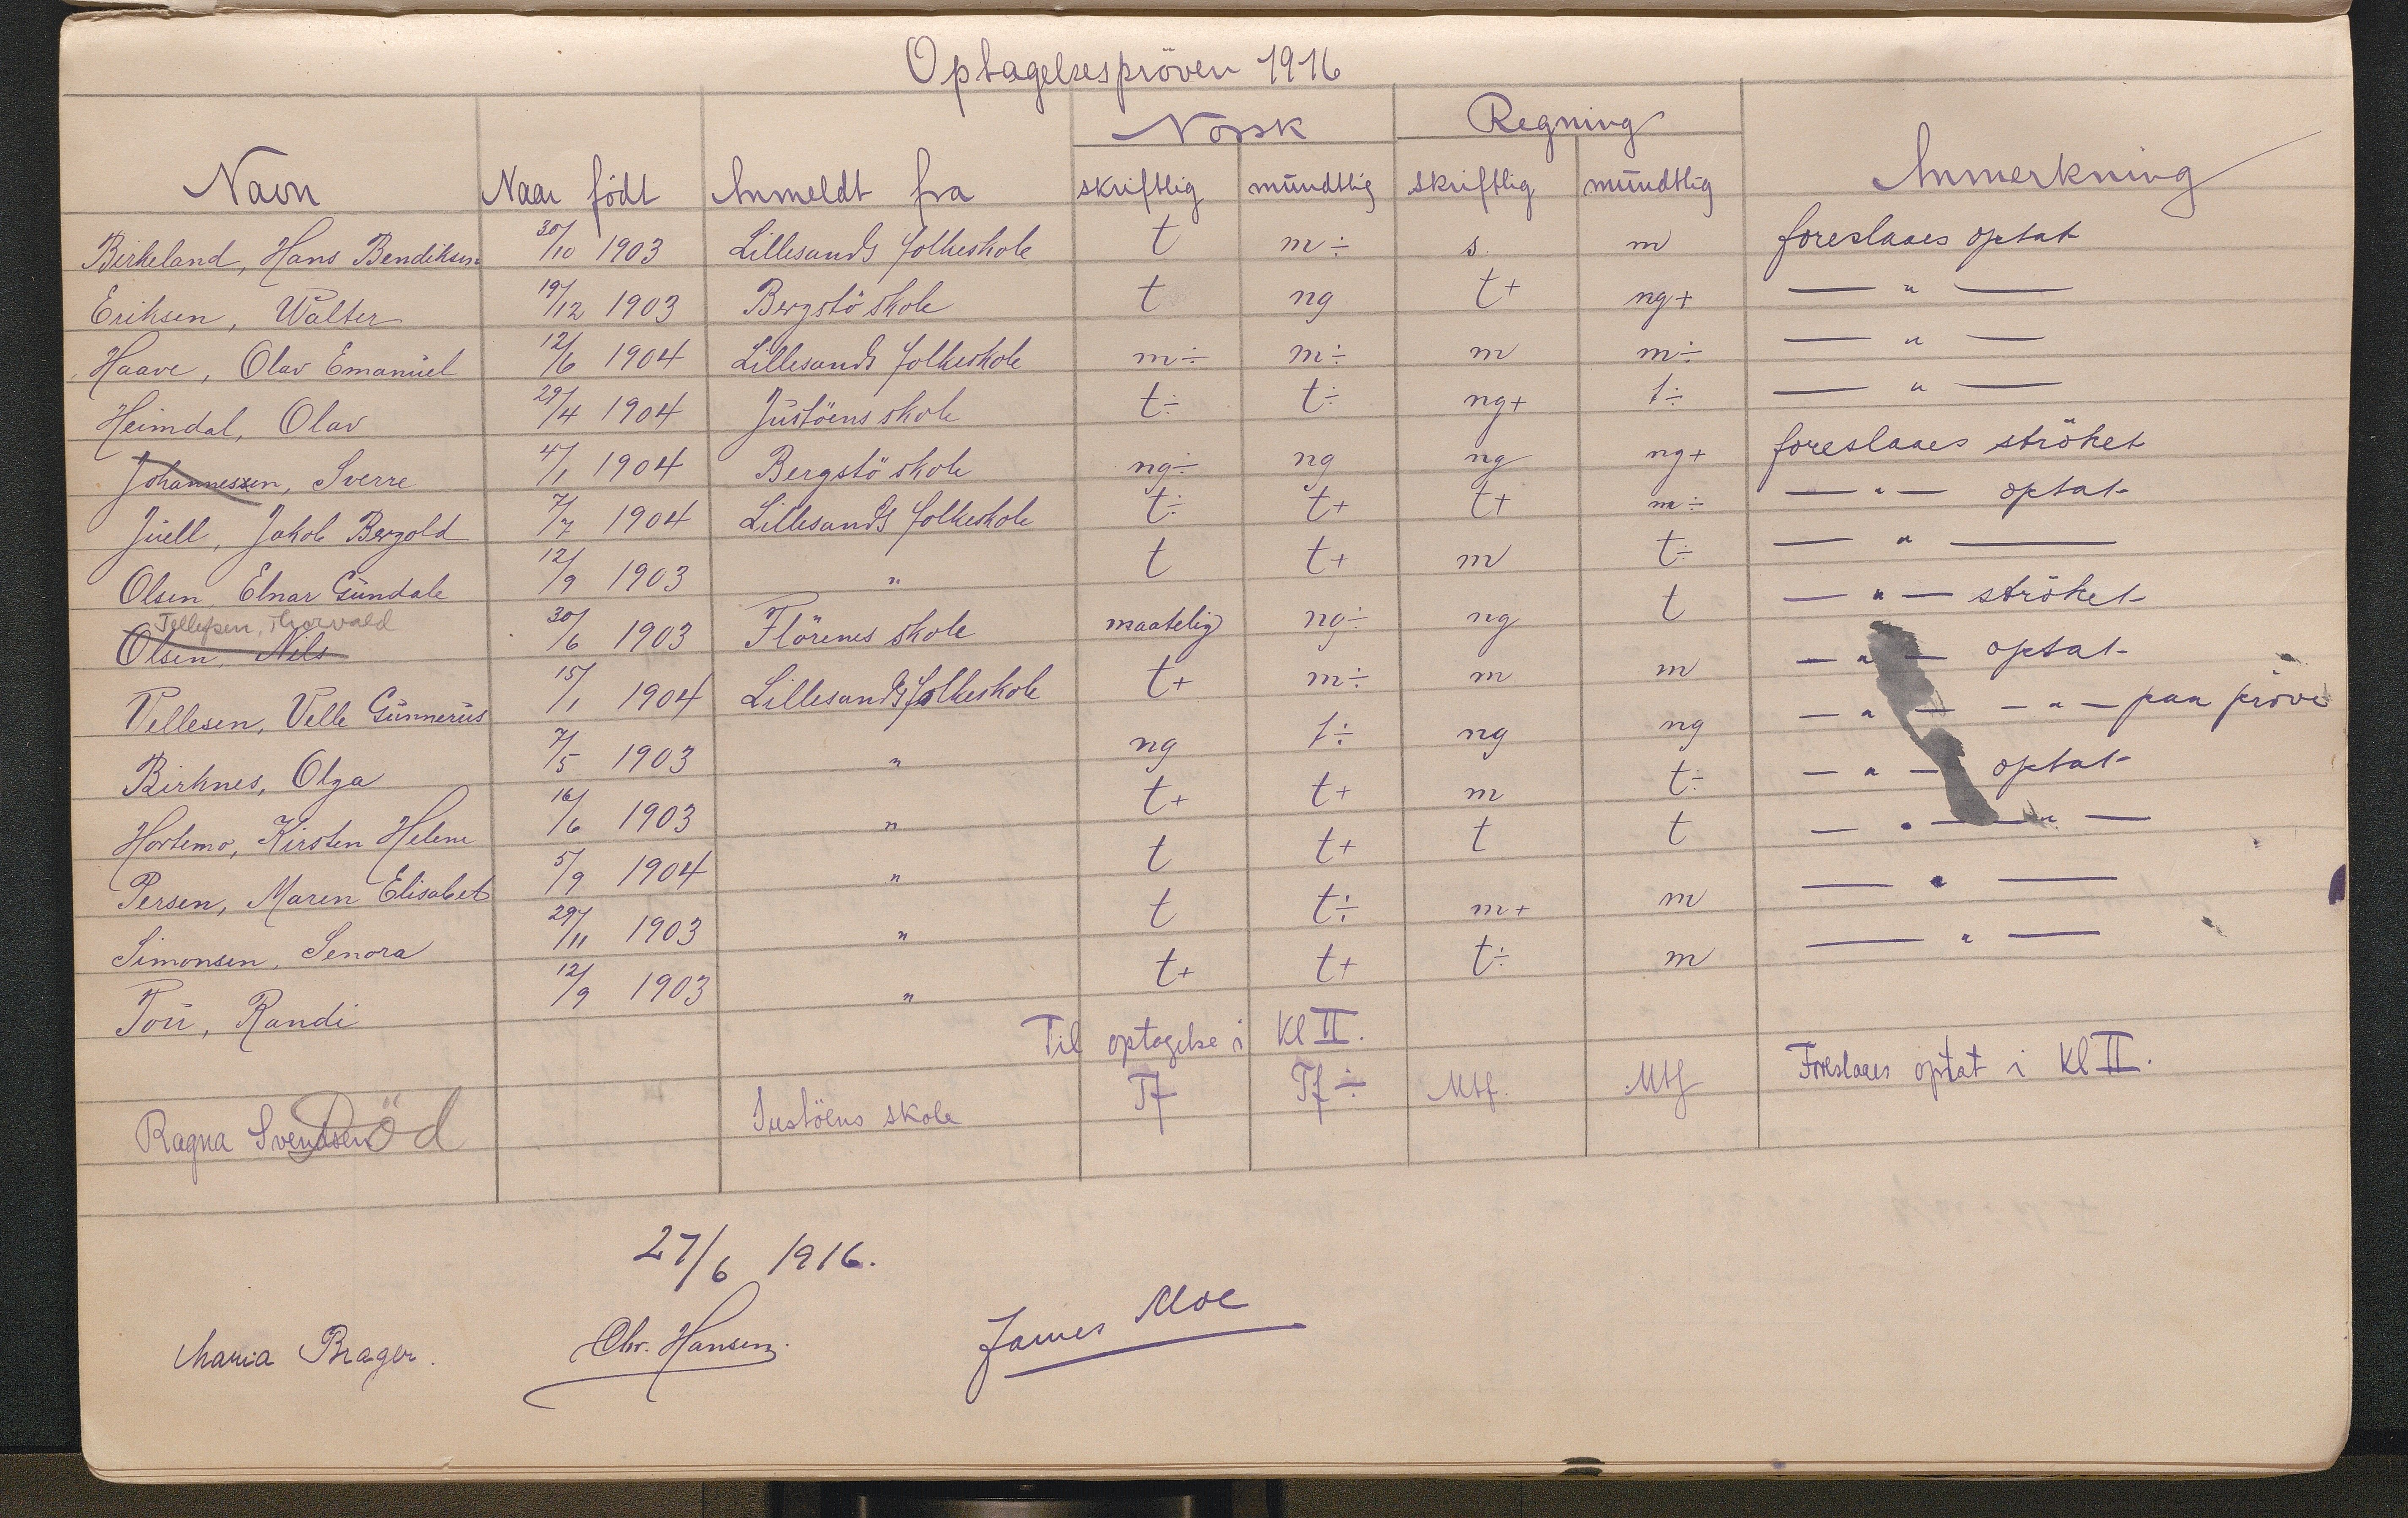 Optagelsespröven 1916
Norsk Regning
Navn Naar födt Anmeldt fra skriftlig mündtlig skriftlig mündtlig Anmerkning
Birkeland, Hans Bendiksen 30/10 1903 Lillesands folkeskole t m÷ s. m foreslaaes optat
Eriksen, Walter 19/12 1903 Bergstö skole t ng t+ ng+ — " —
Haave, Olav Emanüel 12/6 1904 Lillesands folkeskole m÷ m÷ m m÷ — " —
Heimdal, Olav 29/4 1904 Jüstöens skole t÷ t÷ ng+ t÷ — " —
Johannessen, Sverre 4/1 1904 Bergstö skole ng÷ ng ng ng+ foreslaaes ströket
Jüell, Jakob Bergold 7/7 1904 Lillesands folkeskole t÷ t+ t+ m÷ — " — optat
Olsen, Einar Gündale 12/9 1903 " t t+ m t÷ — " —
Tellefsen, Thorvald
Olsen, Nils 30/6 1903 Flörenes skole maatelig ng÷ ng t — " — ströket
Vellesen, Velle Günnerüs 15/1 1904 Lillesands folkeskole t+ m÷ m m — " — optat
Birknes, Olga 7/5 1903 " ng t÷ ng ng — " — — " — paa pröve
Hortemo, Kirsten Helene 16/6 1903 " t+ t+ m t÷ — " — optat
Persen, Maren Elisabet 5/9 1904 " t t+ t t — " — " —
Simonsen, Senora 29/11 1903 " t t÷ m+ m — " —
Toü, Randi 12/9 1903 " t+ t+ t÷ m — " —
Til optagelse i Kl II.
Ragna Svendsen Död Justöens skole Tf Tf÷ Mtf. Mtf Foreslaaes optat i Kl II.
27/6 1916.
Maria Brager. Chr. Hansen. James Moe